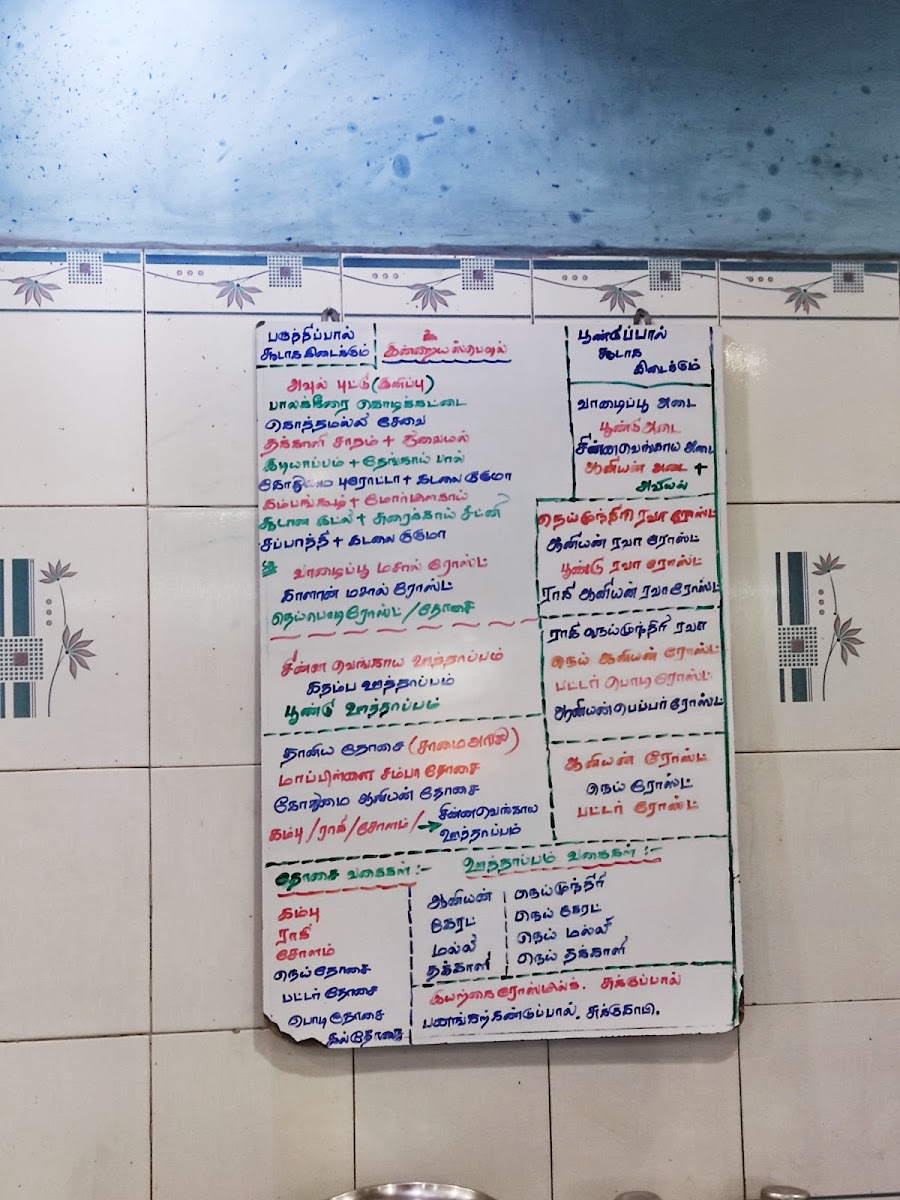 பருத்திப்பால்
சூடாக கிடைக்கும்
உ
இன்றைய ஸ்பெஷல்
பூண்டுப்பால்
சூடாக
கிடைக்கும்
அவுல் புட்டு (இனிப்பு)
பாலக்கீரை கொடிக்கட்டை
கொத்தமல்லி சேவை
தக்காளி சாதம் + துவையல்
இடியாப்பம் + தேங்காய் பால்
கோதுமை புரோட்டா + கடலை குருமா
கம்பங்கூழ் + மோர்மிளகாய்
சூடான இட்லி + சுரைக்காய் சட்னி
சப்பாத்தி + கடலை குருமா
வாழைப்பூ மசால் ரோஸ்ட்
காளான் மசால் ரோஸ்ட்
நெய்பொடி ரோஸ்ட் / தோசை
சின்ன வெங்காய ஊத்தாப்பம்
கதம்ப ஊத்தாப்பம்
பூண்டு ஊத்தாப்பம்
தானிய தோசை (சாமை அரிசி)
மாப்பிள்ளை சம்பா தோசை
கோதுமை ஆனியன் தோசை
கம்பு / ராகி / சோளம் / → சின்னவெங்காய
ஊத்தாப்பம்
வாழைப்பூ அடை
பூண்டு அடை
சின்னவெங்காய அடை
ஆனியன் அடை +
அவியல்
நெய்முந்திரி ரவா ரோஸ்ட்
ஆனியன் ரவா ரோஸ்ட்
பூண்டு ரவா ரோஸ்ட்
ராகி ஆனியன் ரவா ரோஸ்ட்
ராகி நெய்முந்திரி ரவா
நெய் ஆனியன் ரோஸ்ட்
பட்டர் பொடி ரோஸ்ட்
ஆனியன் பெப்பர் ரோஸ்ட்
ஆனியன் ரோஸ்ட்
நெய் ரோஸ்ட்
பட்டர் ரோஸ்ட்
தோசை வகைகள் :-
கம்பு
ராகி
சோளம்
நெய் தோசை
பட்டர் தோசை
பொடி தோசை
கல்தோசை
ஊத்தாப்பம் வகைகள் :-
ஆனியன்
கேரட்
மல்லி
தக்காளி
நெய்முந்திரி
நெய் கேரட்
நெய் மல்லி
நெய் தக்காளி
இயற்கை ரோஸ்மில்க். சுக்குப்பால்
பனங்கற்கண்டுப்பால். சுக்குகாபி.